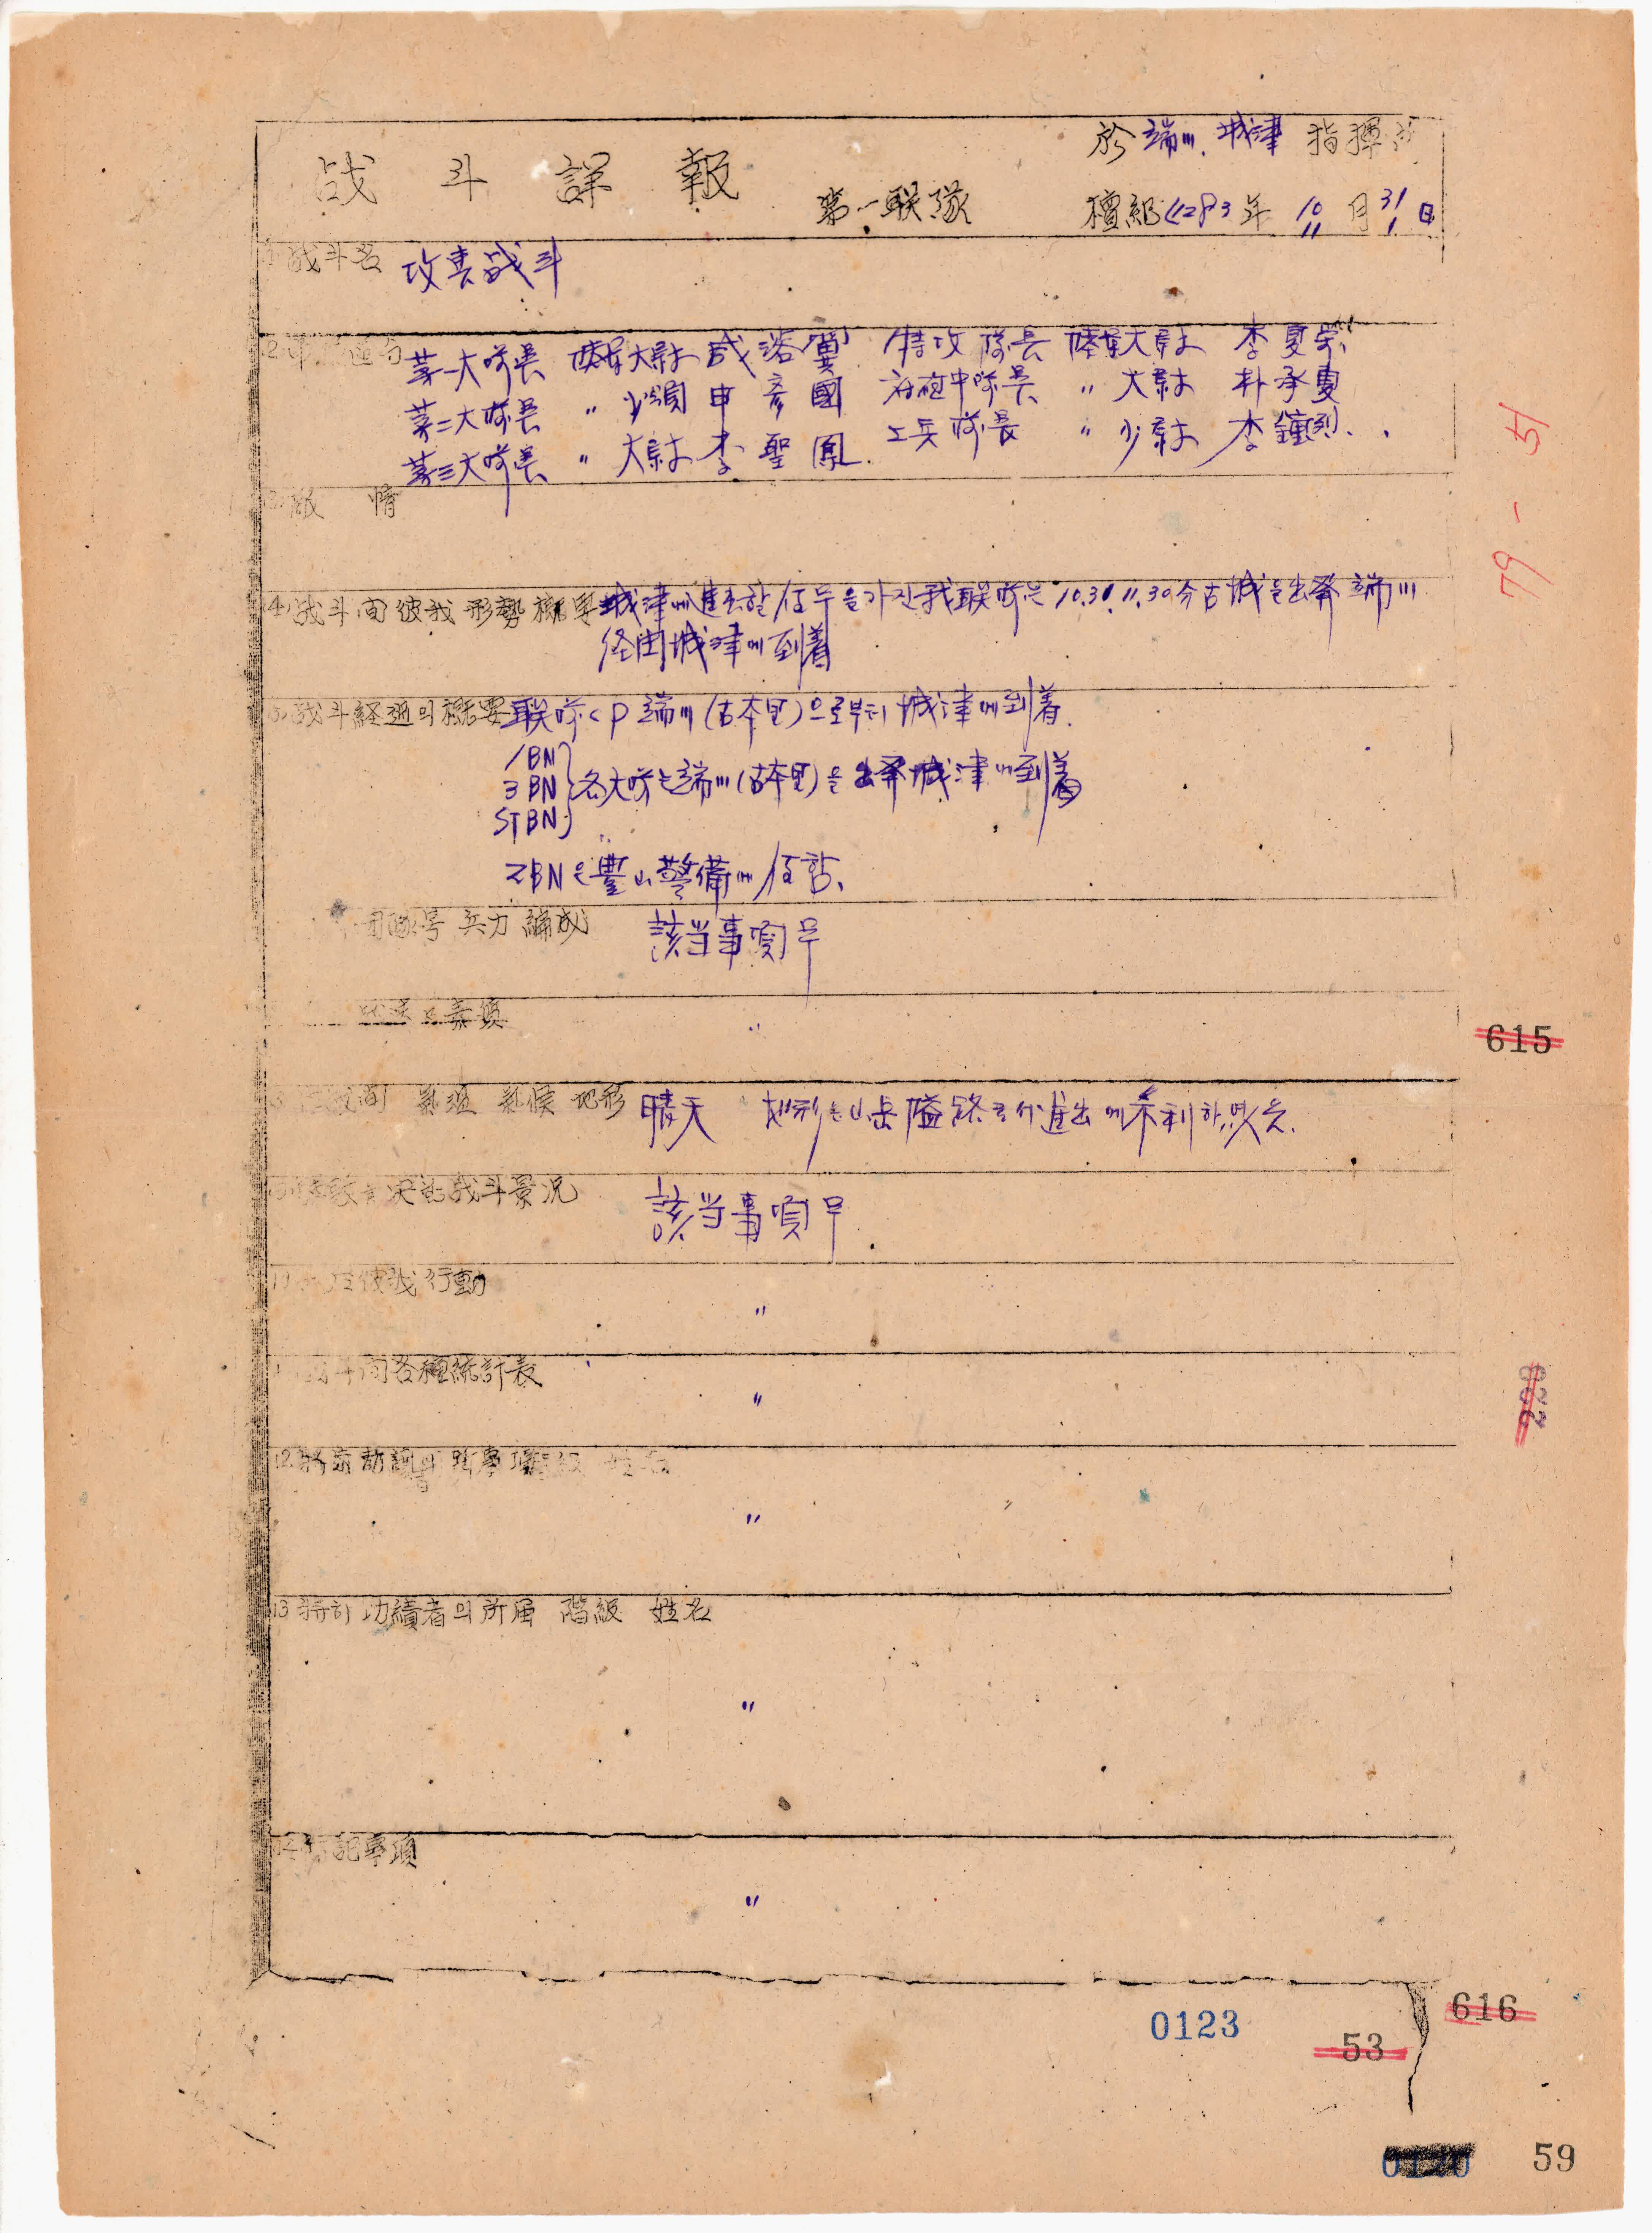 於 端川、城津 指揮所
战 斗 詳 報
第一联隊
檀紀4283年 10月31日
11 1
战斗名 攻擊战斗
第一大隊長 陸軍大尉 特攻隊長 陸軍大尉 李夏榮
第二大隊長 〃 少領 申彦國 中隊長 〃 大尉 朴承夏
第三大隊長 〃 大尉 李聖鳳 工兵隊長 〃 少尉 李鐘烈
敵 情
(4) 战斗间彼我形勢概要 城津에進出할任무을가진我联隊은 10.31. 11.30分古城을出發端川
経由城津에到着
战斗経過의概要 联隊CP 端川(古本里)으로부터 城津에到着.
1BN
3BN 各大隊는端川(古本里)을出發城津에到着
STBN
2BN은豊山警備에任함、
号 兵力 編成 該当事項무
〃
氣候 地形 晴天 地形은山岳隘路로서進出에不利하였음.
战斗景況 該当事項무
彼我行動
〃
各種統計表
〃
12
〃
13 特히 功績者의所屬 階級 姓名
〃
記事項
〃
79-51
615
622
0123
53
616
59